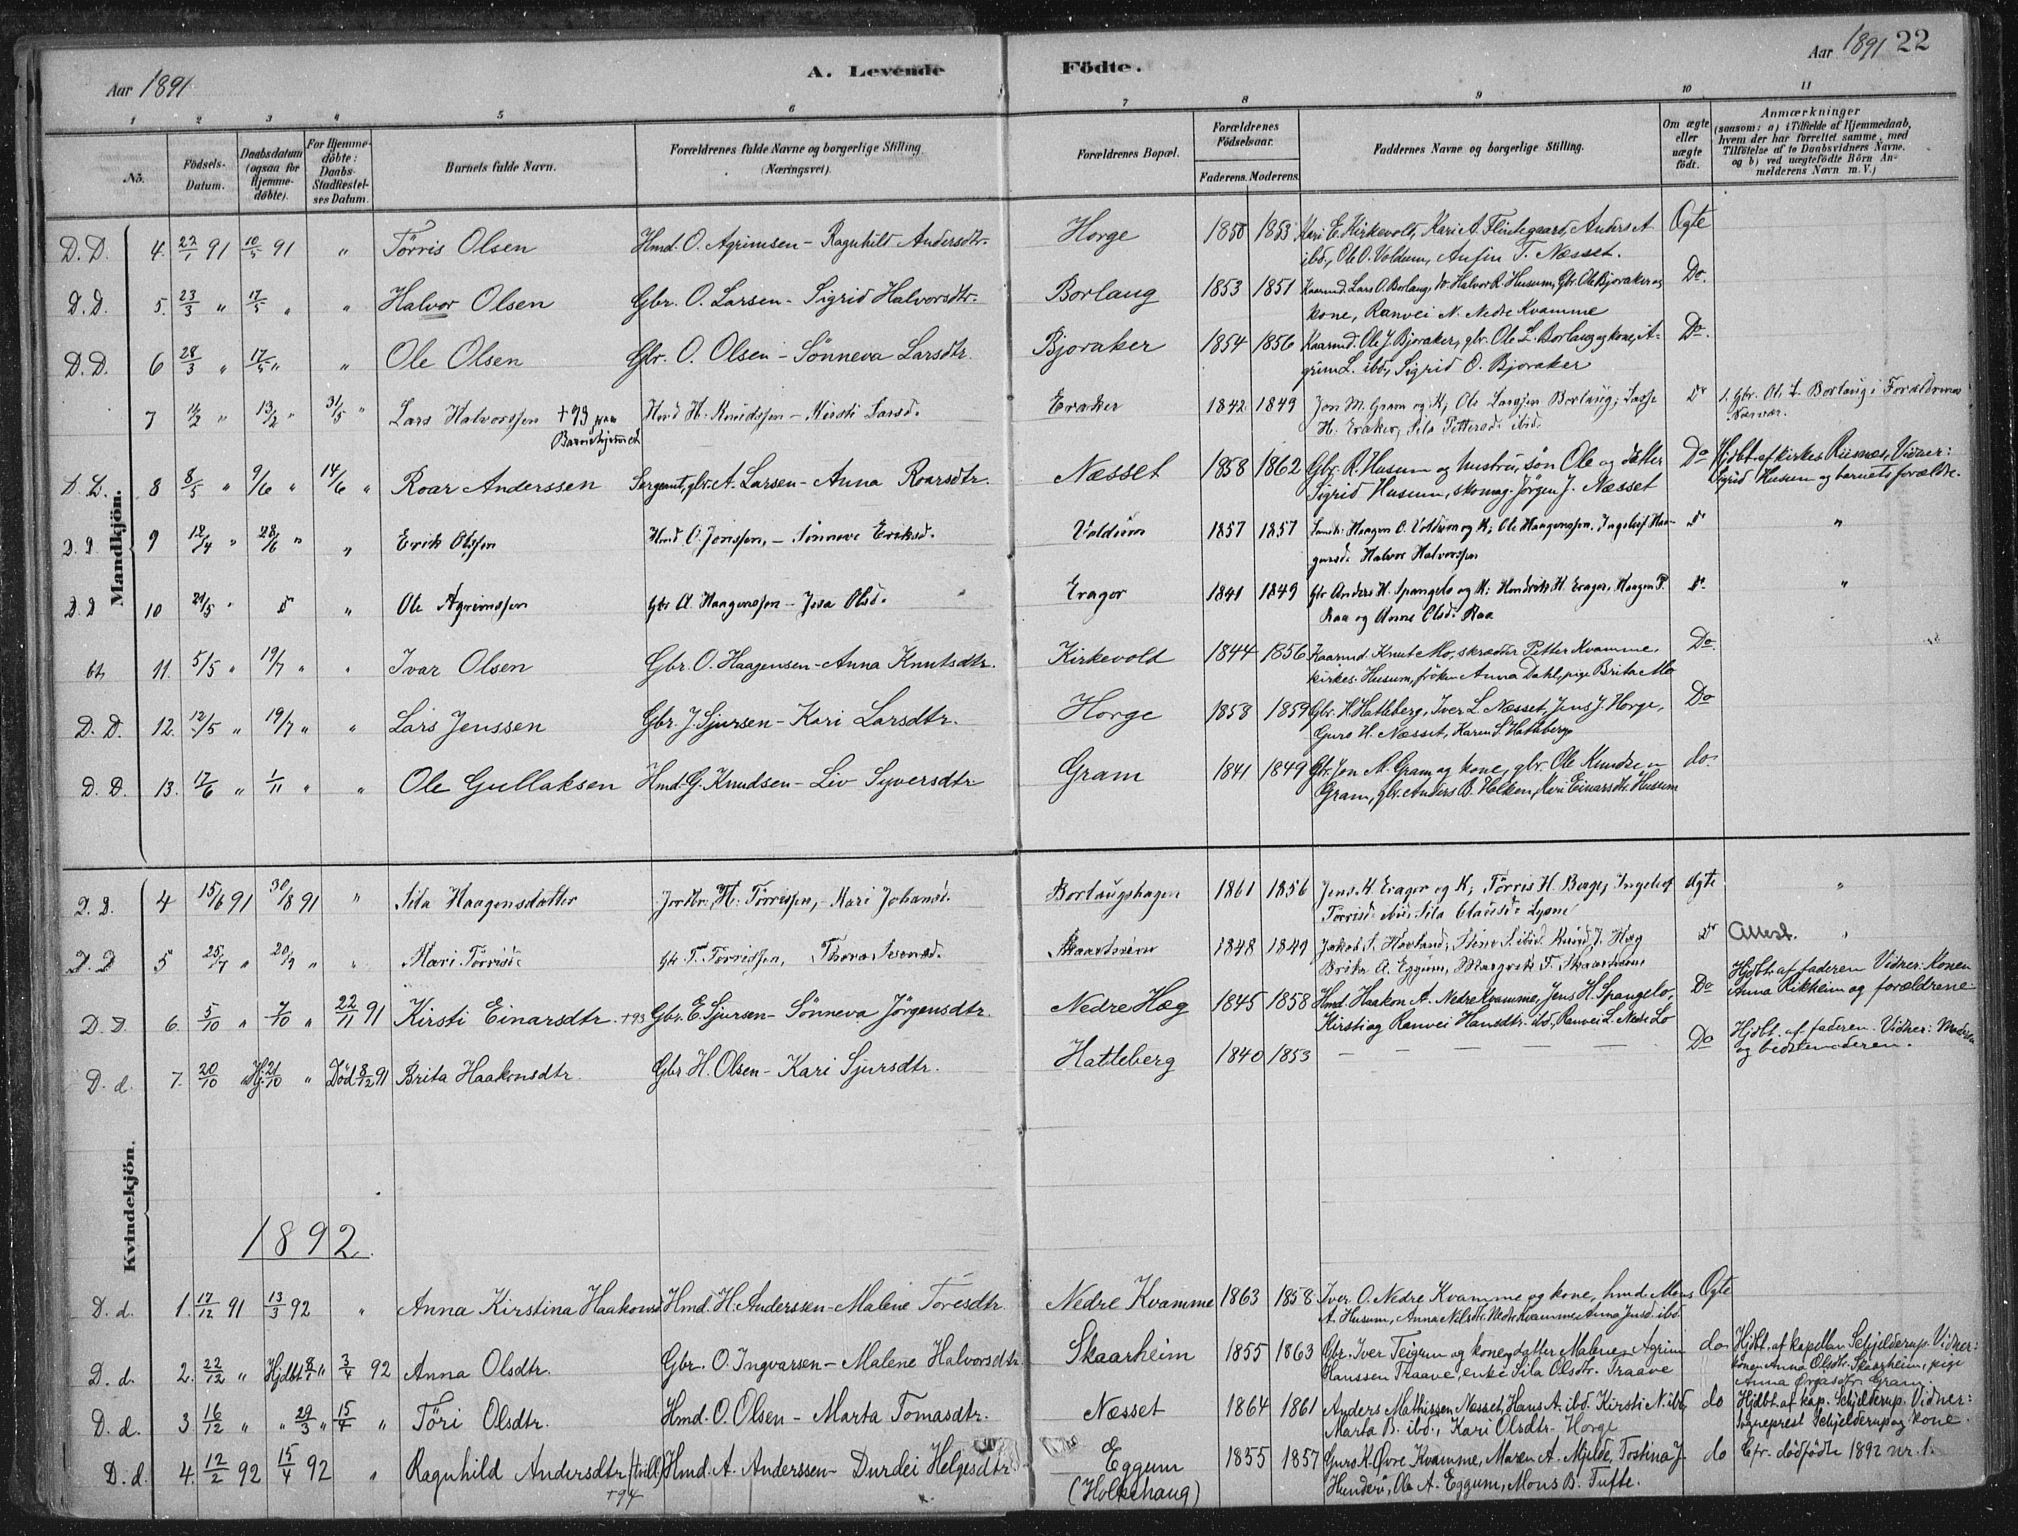 Aar 1891
A. Levende Födte.
Aar 1891 22
1 2 3 4 5 6 7 8 9 10 11
No. Födsels-Datum. Daabsdatum (ogsaa for Hjemme-döbte). For Hjemme-döbte: Daabs-Stadfæstel-ses Datum. Barnets fulde Navn. Forældrenes fulde Navne og borgerlige Stilling (Næringsvei). Forældrenes Bopæl. Forældrenes Födselsaar. Faderens. Moderens. Faddernes Navne og borgerlige Stilling. Om ægte eller uægte födt. Anmærkninger (saasom: a) i Tilfælde af Hjemmedaab, hvem der har forrettet samme, med Tilföielse af to Daabsvidners Navne, og b) ved uægtefödte Börn An-melderens Navn m. V.)
Mandkjön.
D.D. 4. 22/1 91 10/5 91 " Tørris Olsen Hmd. O. Agrimsen - Ragnhild Andersdtr. Horge 1850 1853 Kari E. Kirkevold, Kari A. Flintegaard, Anders A. Ægte
ibd., Ole O. Voldum, Anfin T. Næsset.
D.D. 5. 23/3 " 17/5 " " Halvor Olsen Gbr. O. Larsen - Sigrid Halvorsdtr. Borlaug 1853 1851 Kaarmd. Lars O. Borlaug, Halvor R. Husum, Gbr. Ole Bjoraker og Do.
kone, Ranvei N. Nedre Kvamme
D.D. 6 28/3 " 17/5 " " Ole Olsen Gbr. O. Olsen - Sønneva Larsdtr. Bjoraker 1854 1856 Kaarmd. Ole J. Bjoraker, gbr. Ole L. Borlaug og kone, A- Do.
grim L. ibd., Sigrid O. Bjoraker
7 11/2 " 13/2 " 31/5 " Lars Halvorssen +93 paa Barnehjemmet Hmd H. Knudssen - Kirsti Larsd. Eraker 1842 1849 Jon M. Gram og K; Ole Larssen Borlaug; Lasse Do 1. Gbr. Ole L. Borlaug i Forældrenes
H. Eraker, Sila Pettersd. ibid. Nærvær.
D.D. 8 8/5 " 9/6 " 14/6 " Roar Anderssen Sergeant, gbr. A. Larsen - Anna Roarsdtr. Næsset 1858 1862 Gbr. R. Husum og hustru, søn Ole og datter Do Hjdbt. af kirkes. Riisnæs, Vidner:
Sigrid Husum, skomag. Jørgen J. Næsset Sigrid Husum og barnets forældre.
D.D. 9 12/4 " 28/6 " " Erik Olssen Hmd O. Jonssen, - Sønneve Eriksd. Voldum 1857 1857 Haagen O. Voldum og K; Ole Haagenssen, Ingeleif Haa- Do "
gensd. Halvor Halvorssen
D.D 10 21/5 " Do " Ole Agrimssen Gbr A. Haagenssen - Olsd. Eragor 1841 1849 Gbr Anders H. Spangelo og K; Hendrik H. Eragor, Haagen P. Do "
Raa og Anne Olsd. Raa
11. 5/5 " 19/7 " " Ivar Olsen Gbr. O. Haagensen - Anna Knutsdtr. Kirkevold 1844 1856 Kaarmd. Knut Mo, skrædder Petter Kvamme, Do.
kirkes. Husum, frøken Anna Dahl, pige Brita Mo
D.D. 12. 12/5 " 19/7 " " Lars Jenssen Gbr. J. Sjursen - Kari Larsdtr. Horge 1858 1859 Gbr. H. Hatleberg, Iver L. Næsset, Jens J. Horge, Do
Guro H. Næsset, Karen S. Hatleberg
D.D. 13. 17/6 " 1/11 " " Ole Gullaksen Hmd. G. Knudsen - Liv Syversdtr Gram 1841 1849 Gbr. Jon M. Gram og kone, gbr. Ole Knudsen do.
Gram, gbr. Anders B. Holken, Kari Einarsdtr. Husum
Kvindekjön.
D.D. 4 15/6 91 30/8 91 " Sila Haagensdatter Jordbr. H. Tørrissen, - Kari Johansd. Borlaugshagen 1861 1856 Jens H. Eragor og K; Tørris H. Borge; Ingeleif Ægte "
Tørrisd. ibid; Sila Olausd. Lysne
D.D 5 25/7 " 20/9 " " Mari Tørrisd: Gbr T. Torrissen, Thora Ivensd. Skaarheim 1848 1849 Jakob S. Hovland; Stine S. ibid. Knud J. Hæg Do Attest. "
Brita A. Eggum, Margrete T. Skaarheim
D.D. 6. 5/10 " 7/10 " 22/11 91 Kirsti Einarsdtr. +93 Gbr. E. Sjursen - Sønneva Jørgensdtr. Nedre Hæg 1845 1858 Hmd. Haakon A. Nedre Kvamme, Jens H. Spangelo, Do Hjdbt. af faderen Vidner: Konen
Kirsti og Ranvei Hansdtr. ibd., Ranvei L. Nedre Lo Anna Rikheim og forældrene.
D.d. 7. 20/10 " Hj. 21/10 " Död 8/12 91 Brita Haakonsdtr. Gbr H. Olsen - Kari Sjursdtr. Hatleberg 1840 1853 — — — — — Do Hjdbt. af faderen. Vidner: Moderen
og bedstemoderen.
1892.
D.d. 1. 17/12 91 13/3 92 " Anna Kirstina Haakonsd. Hmd. H. Anderssen - Malene Toresdtr. Nedre Kvamme 1863 1858 Iver O. Nedre Kvamme og kone, hmd. Mons Ægte
A. Husum, Anna Nilsdtr. Nedre Kvamme, Anna Jensd. ibd.
D.d. 2. 22/12 " Hjdbt 8/1 " 3/4 92 Anna Olsdtr. Gbr. O. Ingvarsen - Malene Halvorsdtr. Skaarheim 1855 1863 Gbr. Iver Teigum og kone, datter Malene, Agrim do Hjdbt. af kapellan Schjelderup. Vidner:
Hanssen Traave, enke Sila Olsdtr. Traave konen Anna Olsdtr. Skaarheim, pige
Anna Gram.
D.d. 3. 16/12 " " 29/3 " 15/4 " Töri Olsdtr. Hmd. O. Olsen - Marta Tomasdtr. Næsset 1864 1861 Anders Mathissen Næsset, Hans A. ibd. Kirsti N. ibd. do Hjdbt. af kap. Schjelderup. Vidner:
Marta B. ibd., Kari Olsdtr. Horge Sogneprest Schjelderup og kone.
D.d. 4. 12/2 92 15/4 92 " Ragnhild Andersdtr. (tvill.) +94 Hmd. A. Anderssen - Durdei Helgesdtr Eggum 1855 1857 Guro K. Øvre Kvamme, Maren A. Mjelde, Tostina J. do Cfr. dødfødte 1892 nr. 1.
(Holkehaug) Hunderi, Ole A. Eggum, Mons B. Tufte.